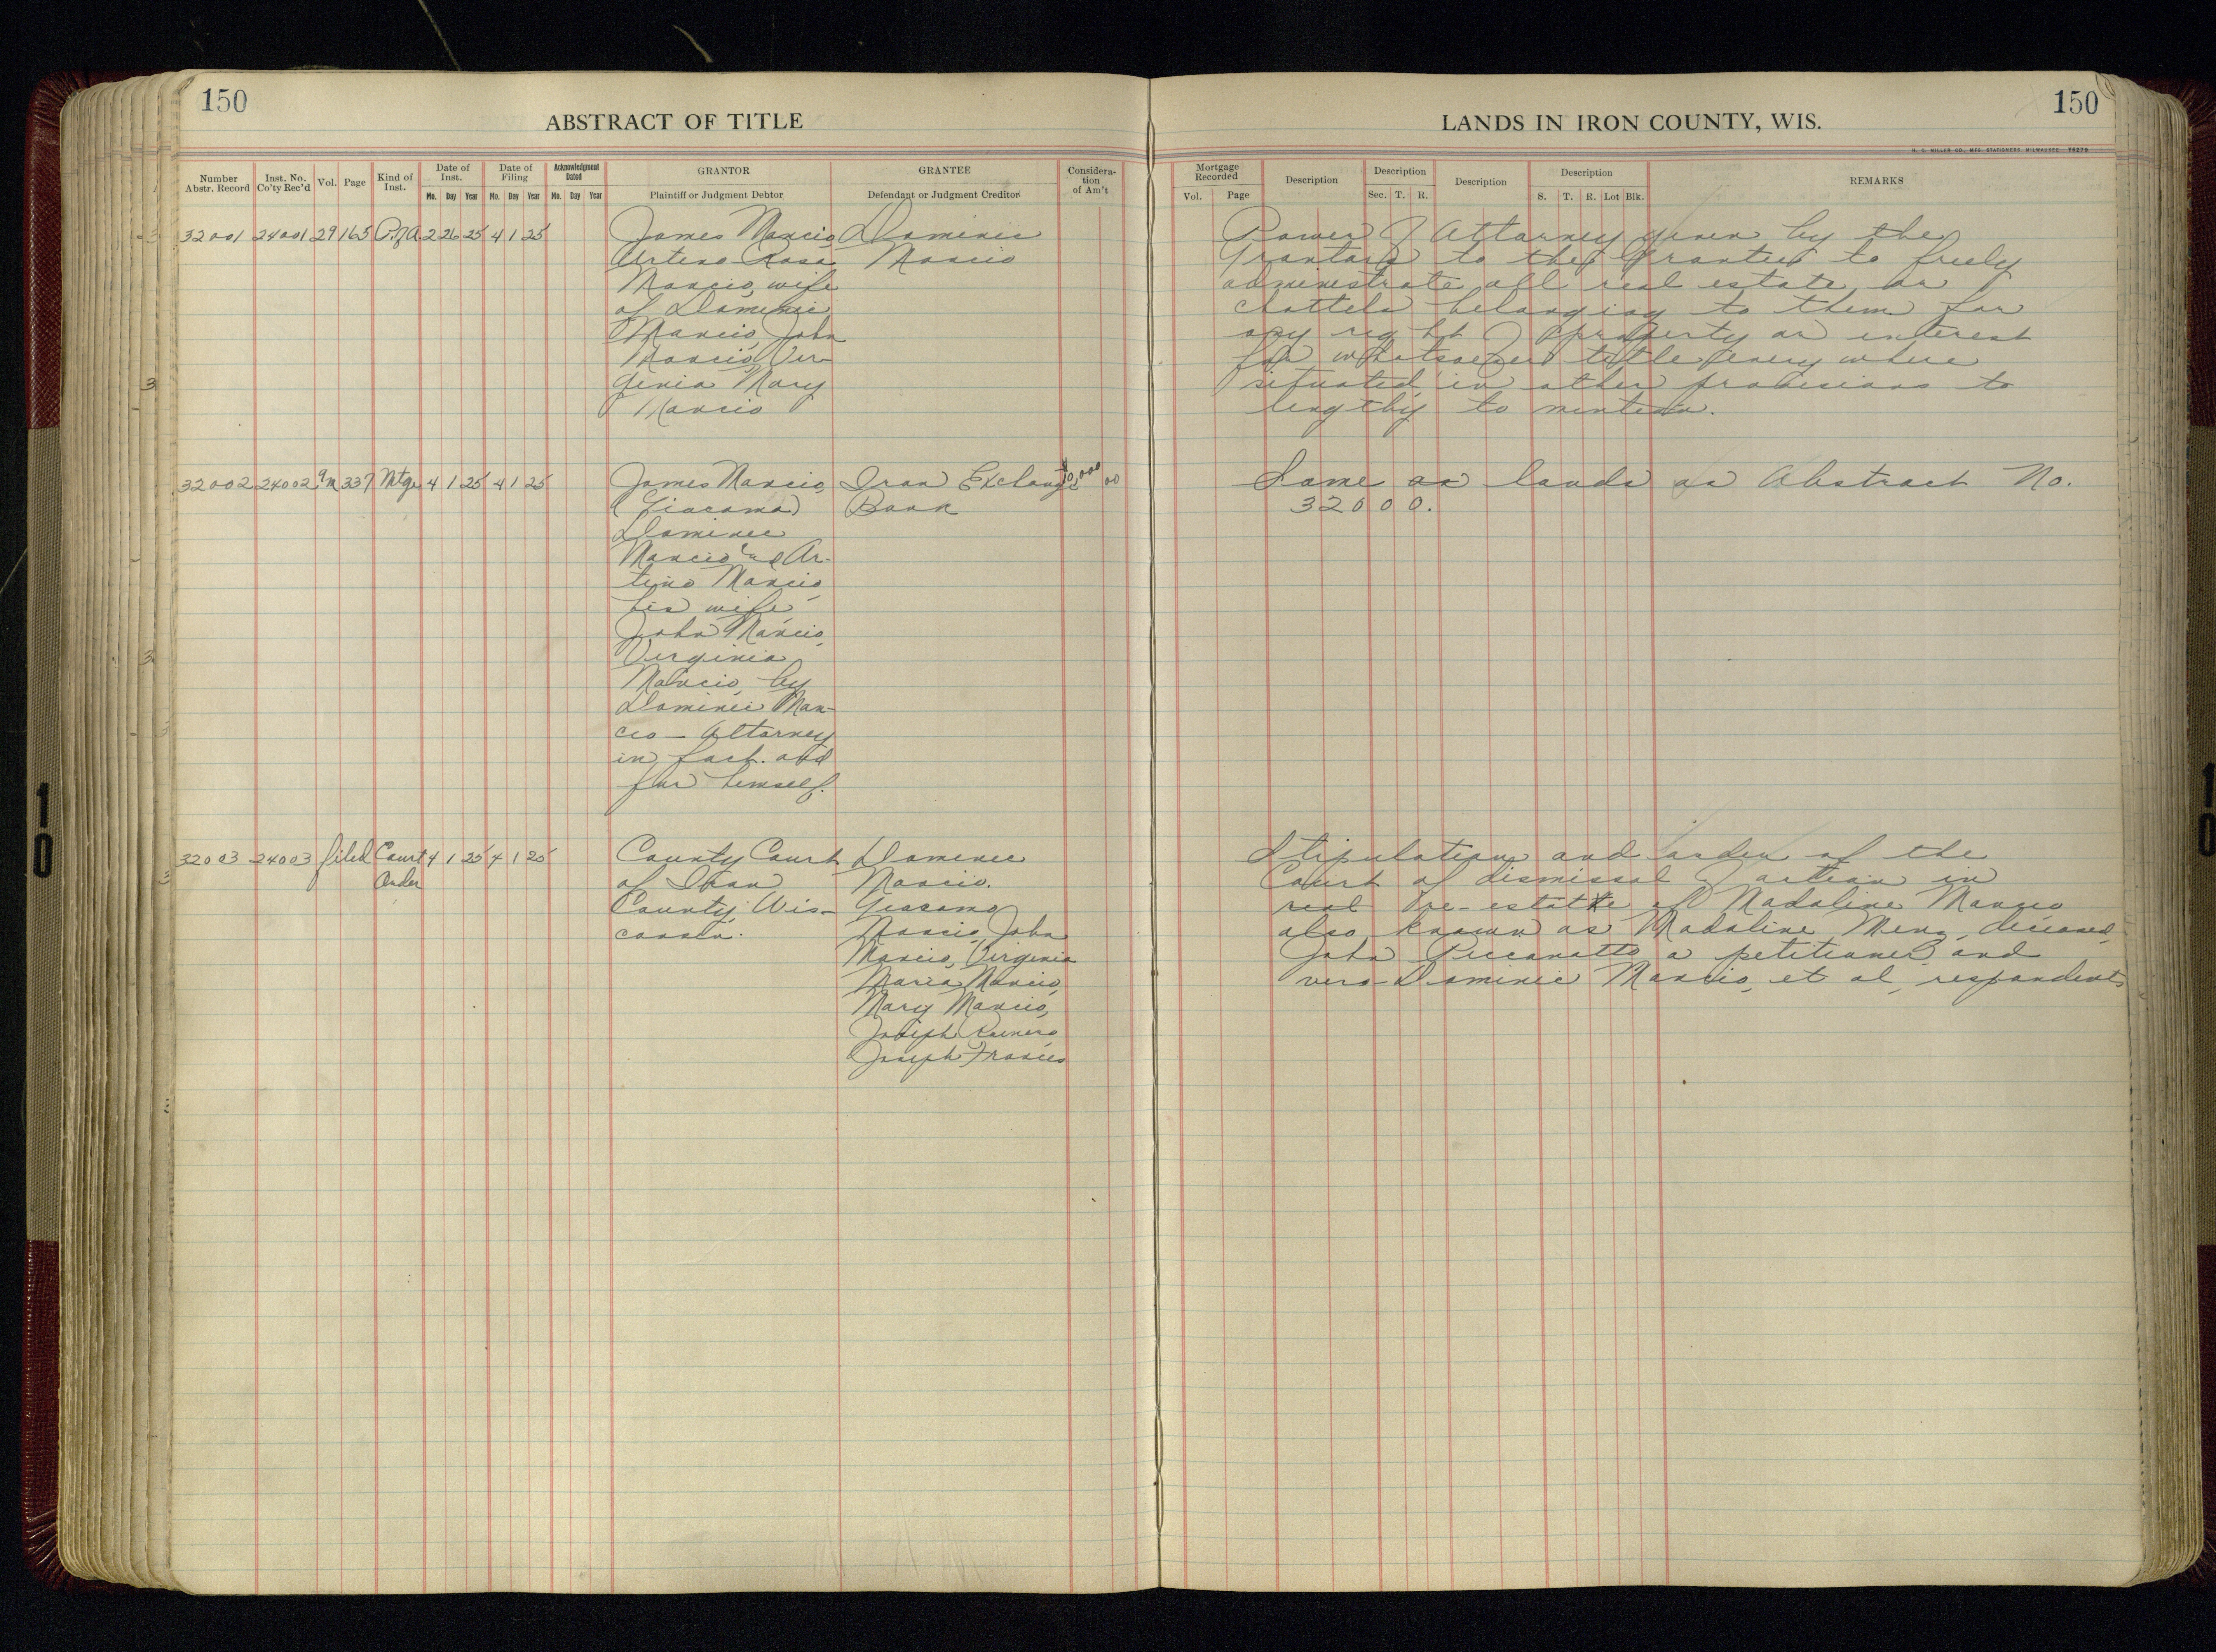 150
ABSTRACT OF TITLE
Number Abstr. Record
Inst. No. Co'ty Rec'd
Vol.
Page
Kind of Inst.
Date of Inst.
Mo. Day Year
Date of Filing
Mo. Day Year
Acknowledgment Dated
Mo. Day Year
GRANTOR
Plaintiff or Judgment Debtor
GRANTEE
Defendant or Judgment Creditor
Considera-
tion
of Am't
32001 24001 29 165 P.of A. 2 26 25 4 1 25
James Mancio
Arteno Rosa
Mancio, wife
of Dominic
Mancio, John
Mancio, Vir-
ginia Mary
Mancio
Dominic
Mancio
32002 24002 337 Mtge 4 1 25 4 1 25
James Mancio,
(Giacama)
Dominic
Mancio and Ar-
tino Mancio,
his wife,
John Mancio,
Virginia
Mancio, by
Dominic Man-
cio - Attorney
in fact. and
for himself.
Iron Exchange
Bank
32003 24003 filed Court 4 1 25 4 1 25
Order
County Court
of Iron
County, Wis-
consin.
Dominic
Mancio.
Giacamo
Mancio, John
Mancio, Virginia
Maria Mancio,
Mary Mancio,
Joseph
Joseph
150
LANDS IN IRON COUNTY, WIS.
H. C. MILLER CO., MFG. STATIONERS, MILWAUKEE
Mortgage Recorded
Vol. Page
Description
Description
Sec. T. R.
Description
Description
S. T. R. Lot Blk.
REMARKS
Power of Attorney given by the
Grantors to the Grantee to freely
administrate all real estate or
chattels belonging to them for
any right of property or interest
for whatsoever title every where
situated, in other provisions to
lengthy to mention.
Same as lands as Abstract No.
32000.
Stipulation and order of the
Court of dismissal of action in
real re-estate of Madaline Mancio
also known as Madaline deceased,
John a petitioner and
vers- Dominic Mancio, et al, respondents
10
10